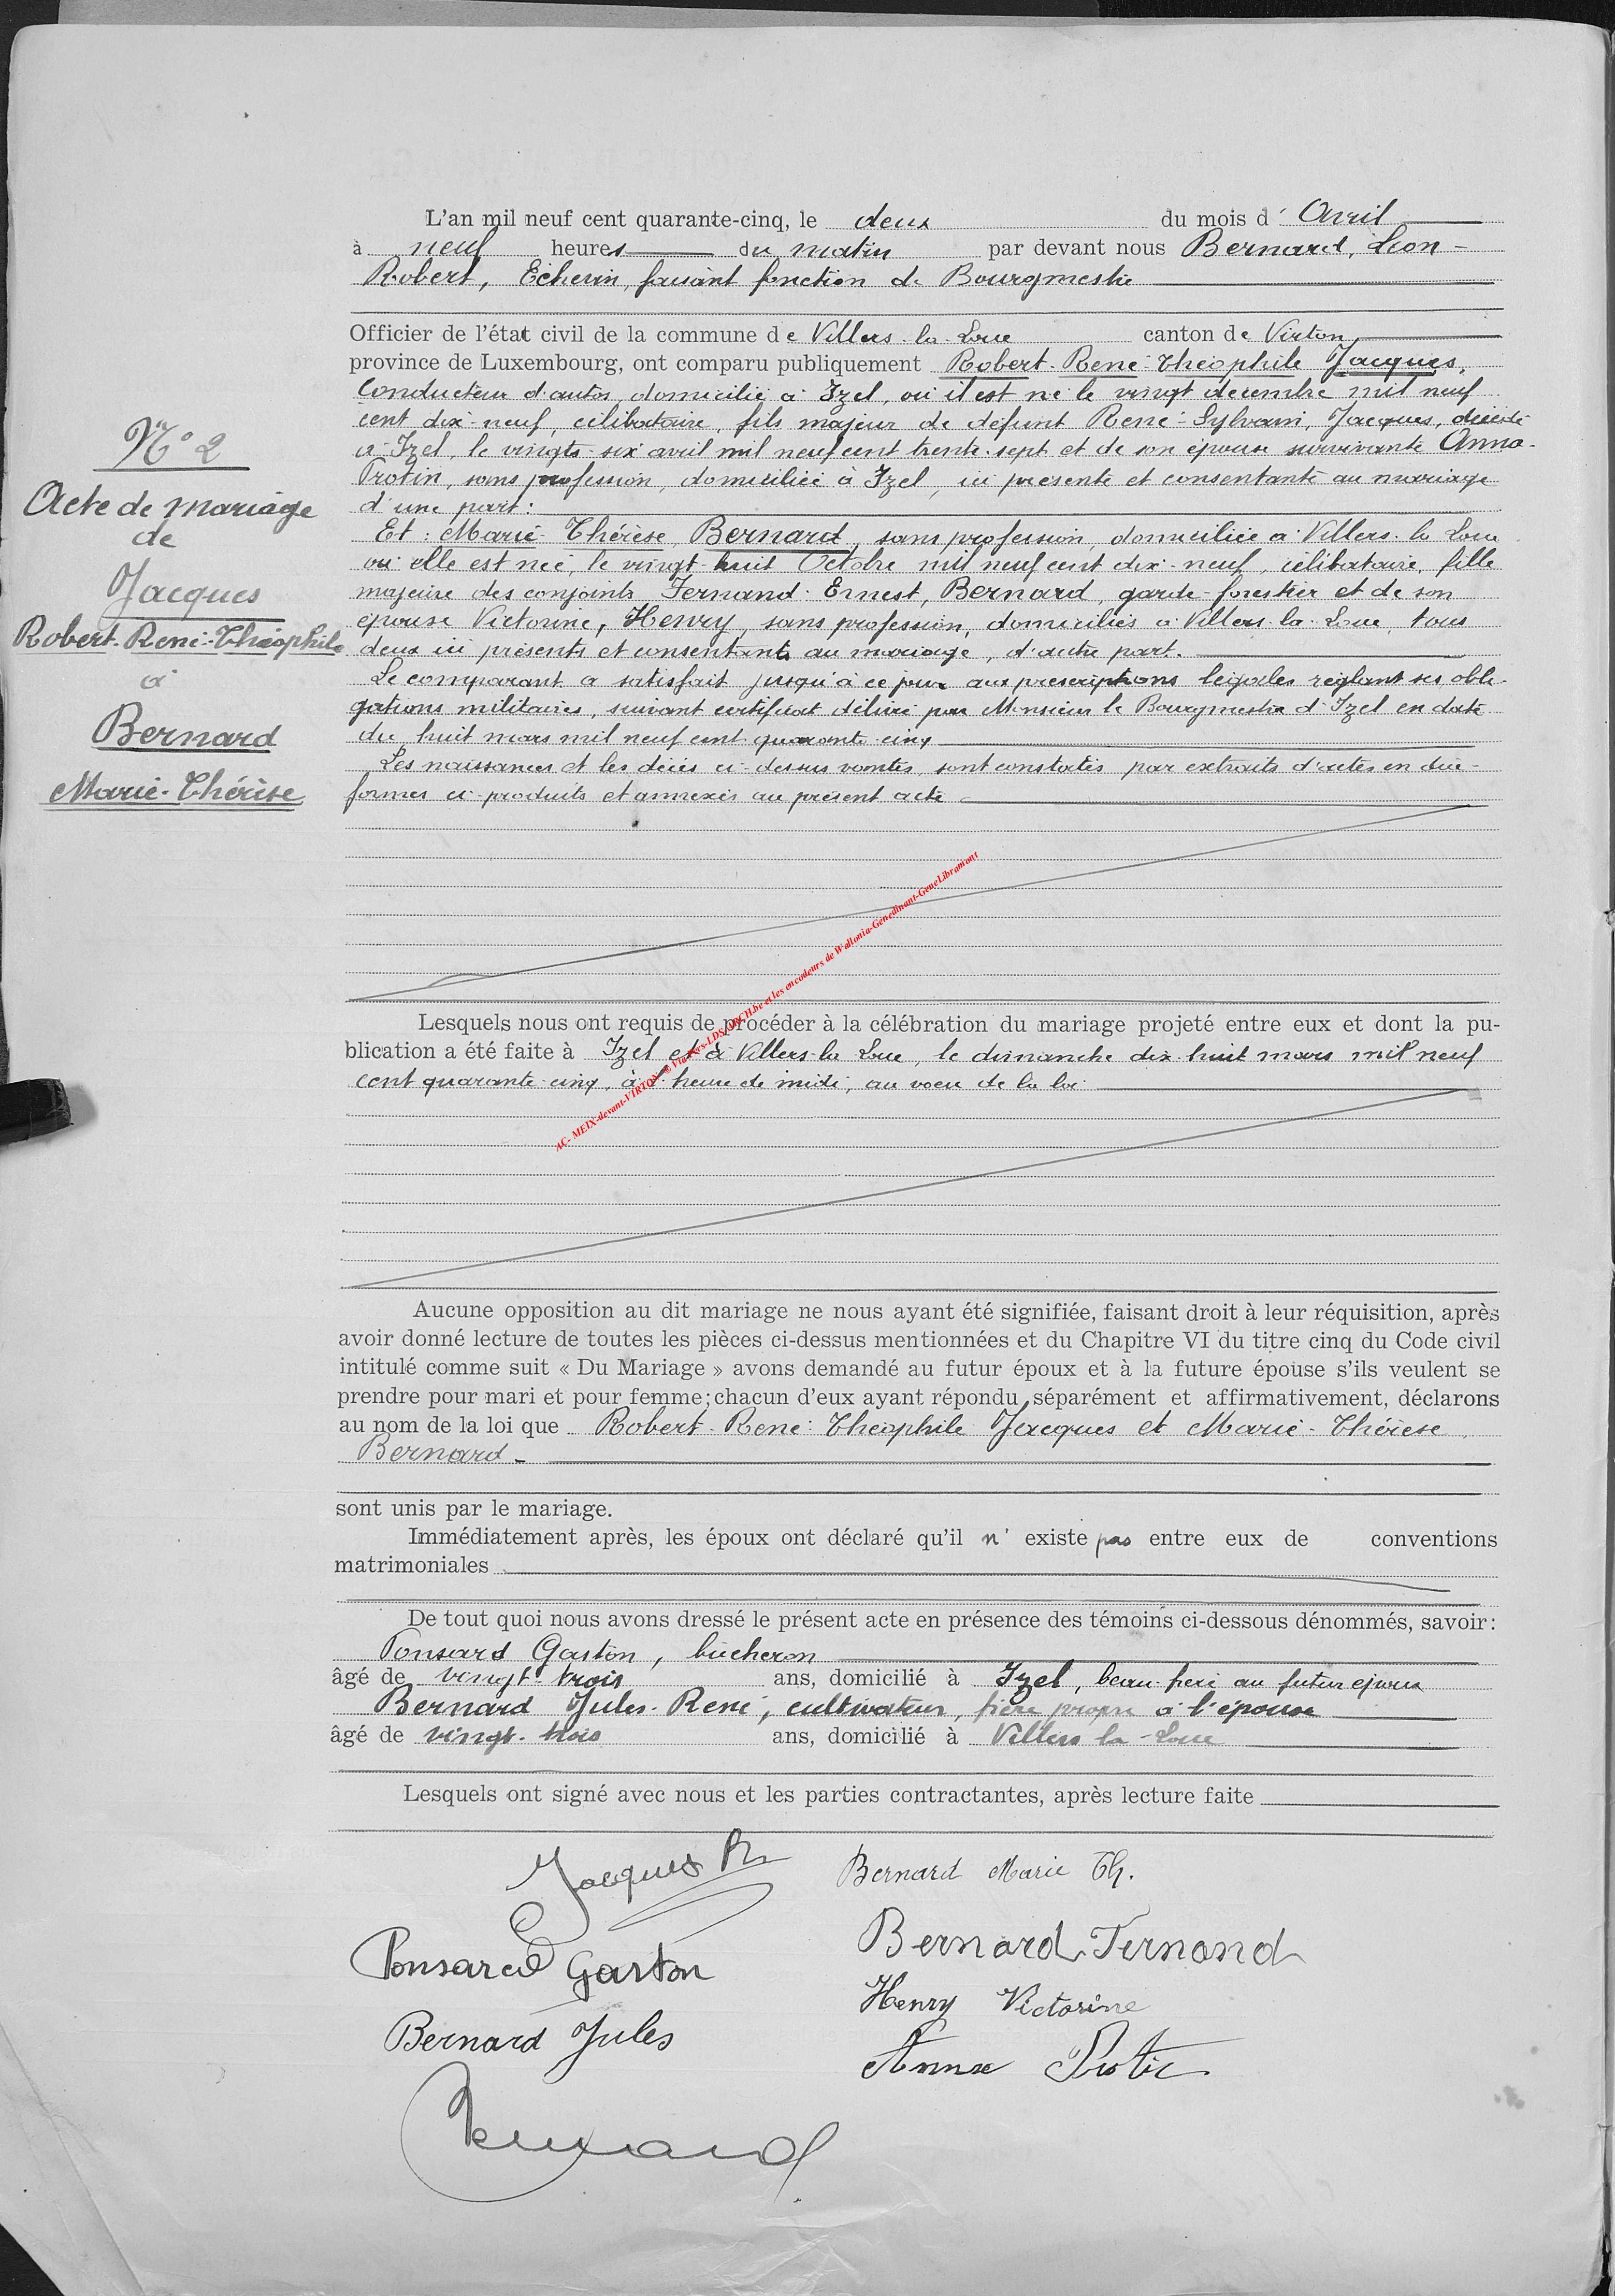 L'an mil neuf cent quarante-cinq, le deux du mois d' Avril
à neuf heures du matin par devant nous Bernard, Léon-
Robert, Echevin, faisant fonction de Bourgmestre
Officier de l'état civil de la commune de Villers-la-Loue canton de Virton
province de Luxembourg, ont comparu publiquement Robert-René-Théophile Jacques,
Conducteur d'autos, domicilié à Izel, où il est né le vingt décembre mil neuf
cent dix-neuf, célibataire, fils majeur de défunt René-Sylvain, Jacques, décédé
à Izel, le vingts-six avril mil neuf cent trente-sept et de son épouse survivante Anna-
Protin, sans profession, domiciliée à Izel, ici présente et consentante au mariage
d'une part:
Et: Marie-Thérèse Bernard, sans profession, domiciliée à Villers-la-Loue
où elle est née, le vingt-huit Octobre mil neuf cent dix-neuf, célibataire, fille
majeure des conjoints Fernand-Ernest, Bernard, garde-forestier et de son
épouse Victorine, Henry, sans profession, domiciliés à Villers-la-Loue, tous
deux ici présents et consentants au mariage, d'autre part.
Le comparant a satisfait jusqu'à ce jour aux prescriptions légales réglant ses obli-
gations militaires, suivant certificat délivré par Monsieur le Bourgmestre d'Izel en date
du huit mars mil neuf cent quarante-cinq
Les naissances et les décès ci-dessus sont constatés par extraits d'actes en due-
formes ci-produits et annexés au présent acte
N° 2
Acte de mariage
de
Jacques
Robert-René-Théophile
à
Bernard
Marie-Thérèse
Lesquels nous ont requis de procéder à la célébration du mariage projeté entre eux et dont la pu-
blication a été faite à Izel et à Villers-la-Loue, le dimanche dix-huit mars mil neuf
cent quarante-cinq, à l'heure de midi, au voeu de la loi
AC- MEIX-devant-VIRTON LDS ARCH.be et les encodeurs de Wallonia-Genedinant-GeneLibramont
Aucune opposition au dit mariage ne nous ayant été signifiée, faisant droit à leur réquisition, après
avoir donné lecture de toutes les pièces ci-dessus mentionnées et du Chapitre VI du titre cinq du Code civil
intitulé comme suit « Du Mariage » avons demandé au futur époux et à la future épouse s'ils veulent se
prendre pour mari et pour femme; chacun d'eux ayant répondu séparément et affirmativement, déclarons
au nom de la loi que Robert-René-Théophile Jacques et Marie-Thérèse
Bernard-
sont unis par le mariage.
Immédiatement après, les époux ont déclaré qu'il n' existe pas entre eux de conventions
matrimoniales
De tout quoi nous avons dressé le présent acte en présence des témoins ci-dessous dénommés, savoir:
Ponsard Gaston, bûcheron
âgé de vingt-trois ans, domicilié à Izel, beau-frère au futur époux
Bernard Jules-René, cultivateur, frère propre à l'épouse
âgé de vingt-trois ans, domicilié à Villers-la-Loue
Lesquels ont signé avec nous et les parties contractantes, après lecture faite
Jacques R
Bernard Marie Th.
Ponsard Gaston
Bernard Fernand
Henry Victorine
Bernard Jules
Anna Protin
Bernard